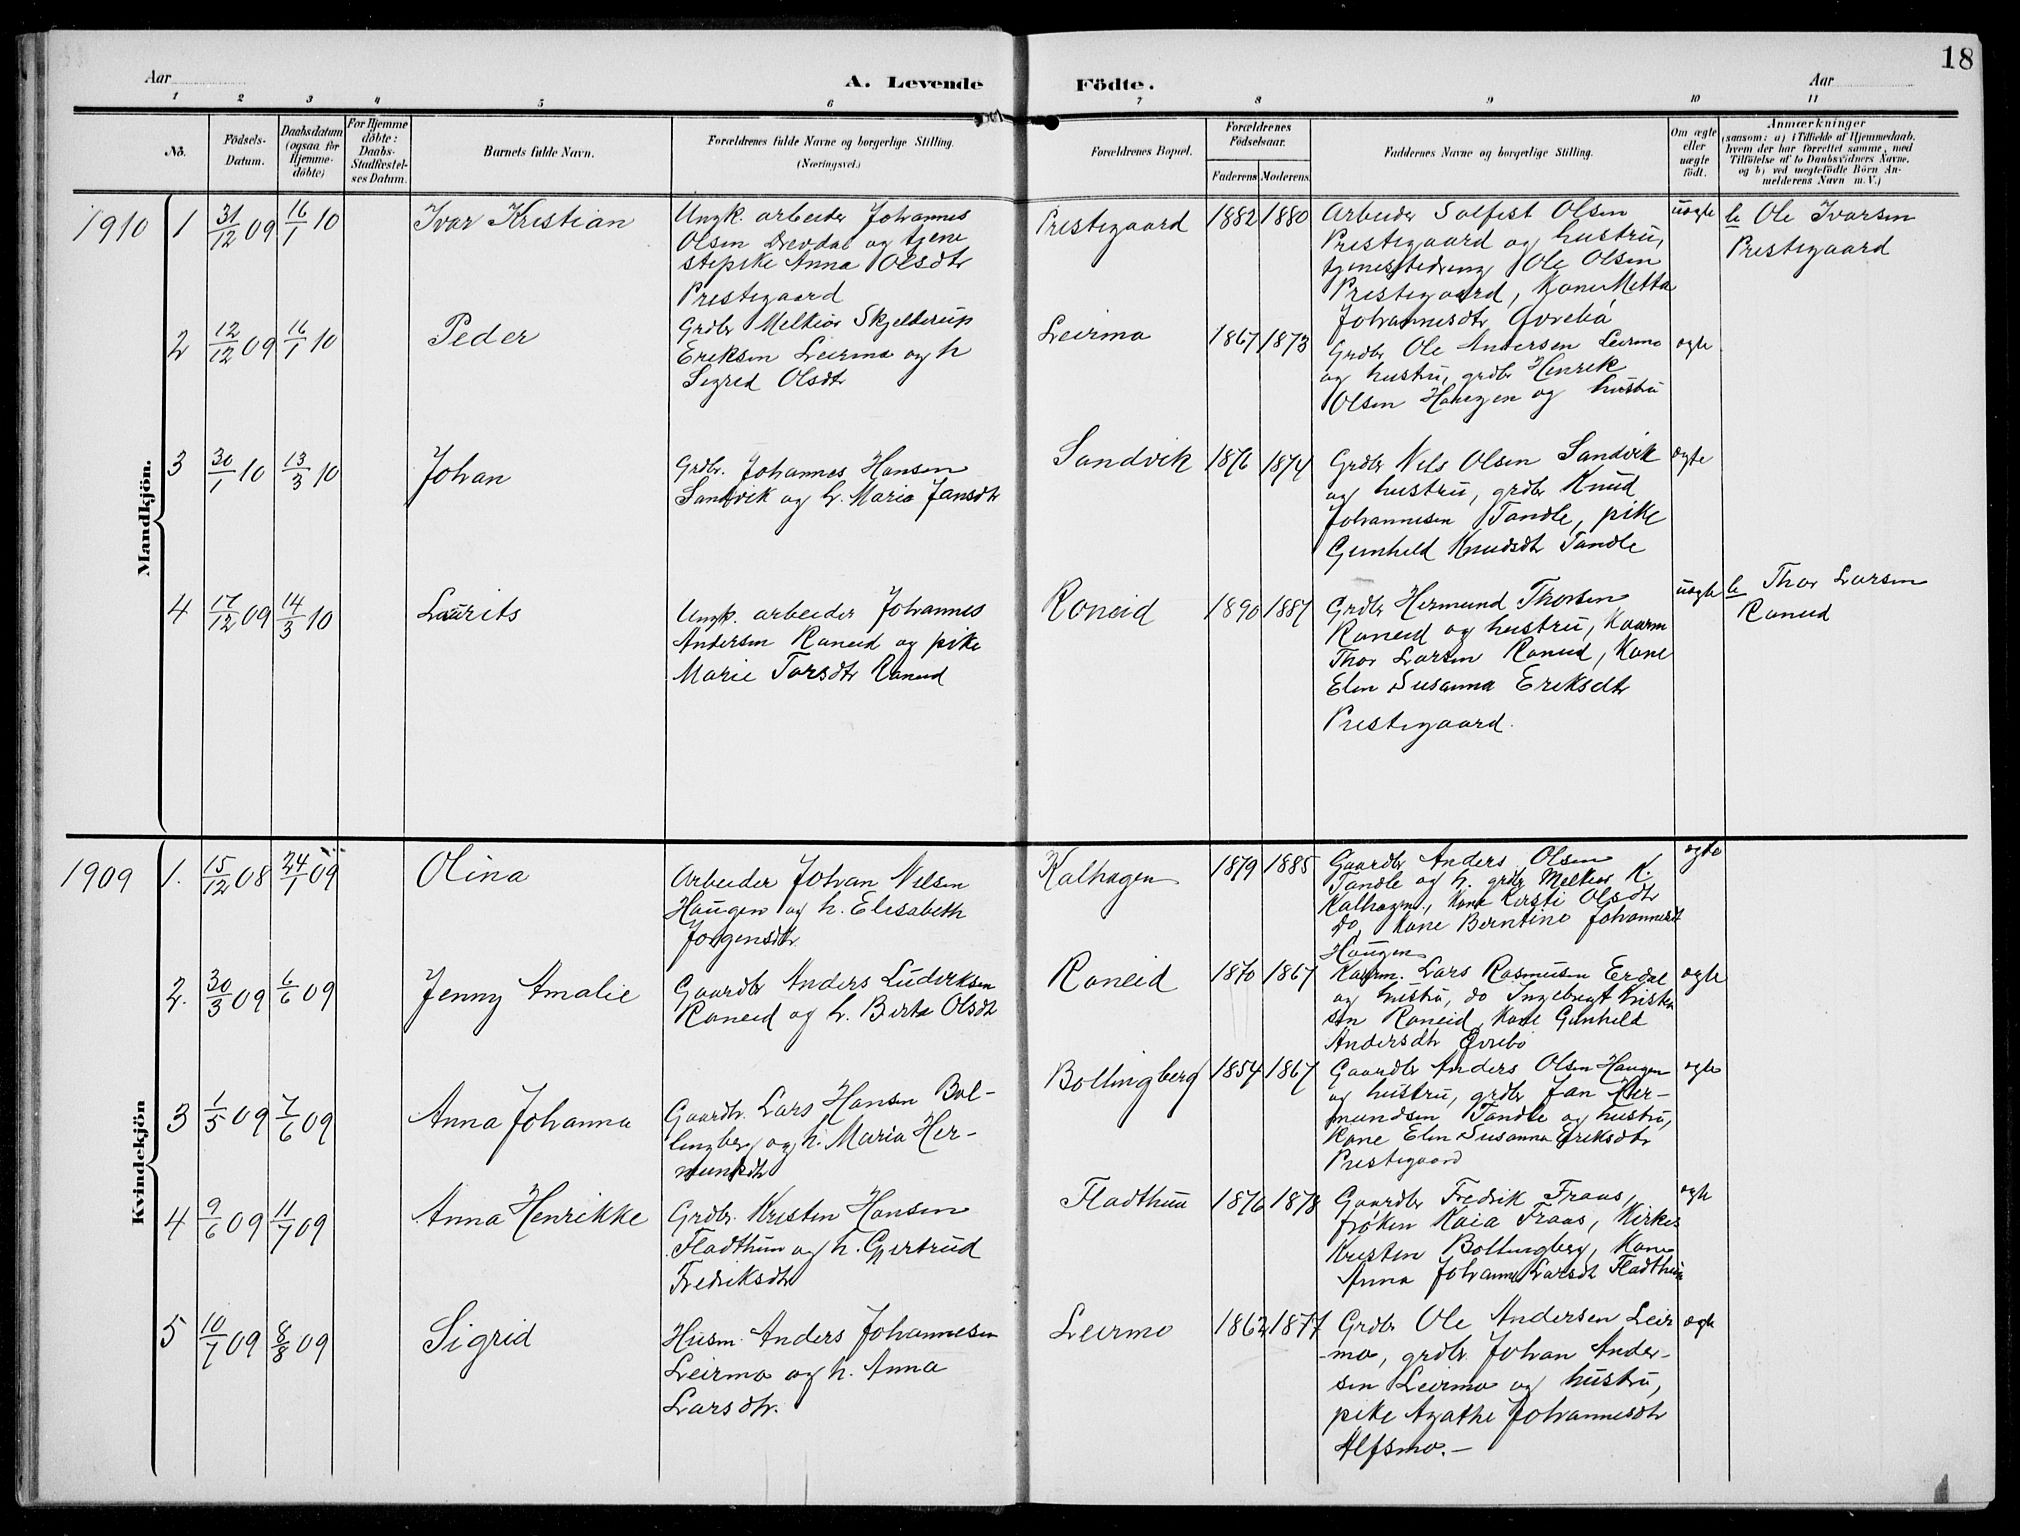 18
Aar
A. Levende
Födte.
Aar
1 2 3 4 5 6 7 8 9 10 11
No.
Födsels-
Datum.
Daabsdatum
(ogsaa for
Hjemme-
döbte)
For Hjemme
döbte:
Daabs-
Stadfæstel-
ses Datum.
Barnets fulde Navn.
Forældrenes fulde Navne og borgerlige Stilling.
(Næringsvei.)
Forældrenes Bopæl.
Forældrenes
Födselsaar.
Faderens
Moderens
Faddernes Navne og borgerlige Stilling.
Om ægte
eller
uægte
födt.
Anmærkninger
(saasom: a) i Tilfælde af Hjemmedaab,
hvem der har forrettet samme, med
Tilföielse af to Daabsvidners Navne.
og b) ved uægtefödte Börn An-
melderens Navn m. V.)
Mandkjön.
1910 1 31/12 09 16/1 10 Ivar Kristian
Ungk. arbeider Johannes
Olsen og tjene
stepike Anna Olsdtr
Prestegaard
Prestegaard 1882 1880
Arbeider Solfest Olsen
Prestegaard og hustru,
tjenestedreng Ole Olsen
Prestegaard, Kone Metta
Johannesdtr Øvrebø
uægte
b Ole Ivarsen
Prestegaard
2 12/12 09 16/1 10 Peder
Grdbr Melkior Skjelderup
Eriksen Leirmo og h
Sigrid Olsdtr
Leirmo 1867 1873
Grdbr Ole Andersen Leirmo
og hustru, grdbr Henrik
Olsen Haugen og hustru
ægte
3 30/1 10 13/3 10 Johan
Grdbr. Johannes Hansen
Sandvik og h. Maria Jansdtr
Sandvik 1876 1874
Grdbr Nels Olsen Sandvik
og hustru, grdbr Knud
Johannesen Tandle, pike
Gunhild Knudsdtr Tandle
ægte
4 17/12 09 14/3 10 Laurits
Ungk. arbeider Johannes
Andersen Roneid og pike
Marie Torsdtr Roneid
Roneid 1890 1887
Grdbr Hermund Thorsen
Roneid og hustru, Kaarm
Thor Larsen Roneid, Kone
Elen Susanna Eriksdtr
Prestegaard.
uægte
b Thor Larsen
Roneid
Kvindekjön
1909 1. 15/12 08 24/1 09 Olina
Arbeider Johan Nilsen
Haugen og h. Elisabeth
Jørgensdtr
Kalhagen 1879 1885
Gaardbr Anders Olsen
Tandle og h. grdbr Melkior K.
Kalhagen, Kone Kirsti Olsdtr
do, Kone Berntine Johannesdt
Haugen
ægte
2. 30/3 09 6/6 09 Jenny Amalie
Gaardbr Anders Luderiksen
Roneid og h. Birta Olsdtr
Roneid 1870 1867
Kaarm. Lars Rasmusen Erdal
og hustru, do Ingebrigt Kristen
sen Roneid, Kone Gunhild
Andersdtr Øvrebø
ægte
3 1/5 09 7/6 09 Anna Johanna
Gaardbr. Lars Hansen Bol-
lingberg og h. Maria Her-
mundsdtr
Bollingberg 1854 1867
Gaardbr Anders Olsen Haugen
og hustru, grdbr Jan Her-
mundsen Tandle og hustru,
Kone Elen Susanna Eriksdtr
Prestegaard
ægte
4 9/6 09 11/7 09 Anna Henrikke
Grdbr. Kristen Hansen
Fladthun og h. Gjertrud
Fredriksdtr
Fladthun 1876 1878
Gaardbr Fredrik Fraas,
frøken Kaia Fraas, Kirkes
Kristen Bollingberg, Kone
Anna Johanne Larsdt Fladthun
ægte
5 10/7 09 8/8 09 Sigrid
Husm. Anders Johannesen
Leirmo og h. Anna
Larsdtr.
Leirmo 1862 1877
Grdbr Ole Andersen Leir
-mo, grdbr. Johan Ander-
sen Leirmo og hustru,
pike Agathe Johannesdtr
Alfsmo.-
ægte